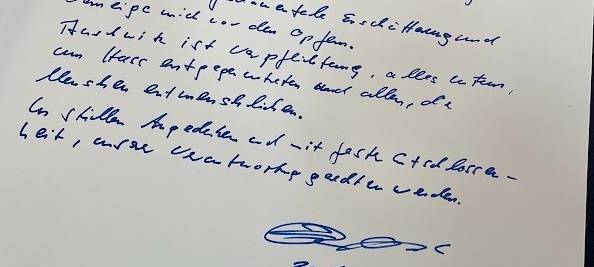 Erschütterung und
verneige mich vor den Opfern.
Auschwitz ist Verpflichtung, alles zu tun,
um Hass entgegenzutreten und allen, die
Menschen entmenschlichen.
In stillem Angedenken und mit fester Entschlossen-
heit, unserer Verantwortung gerecht zu werden.